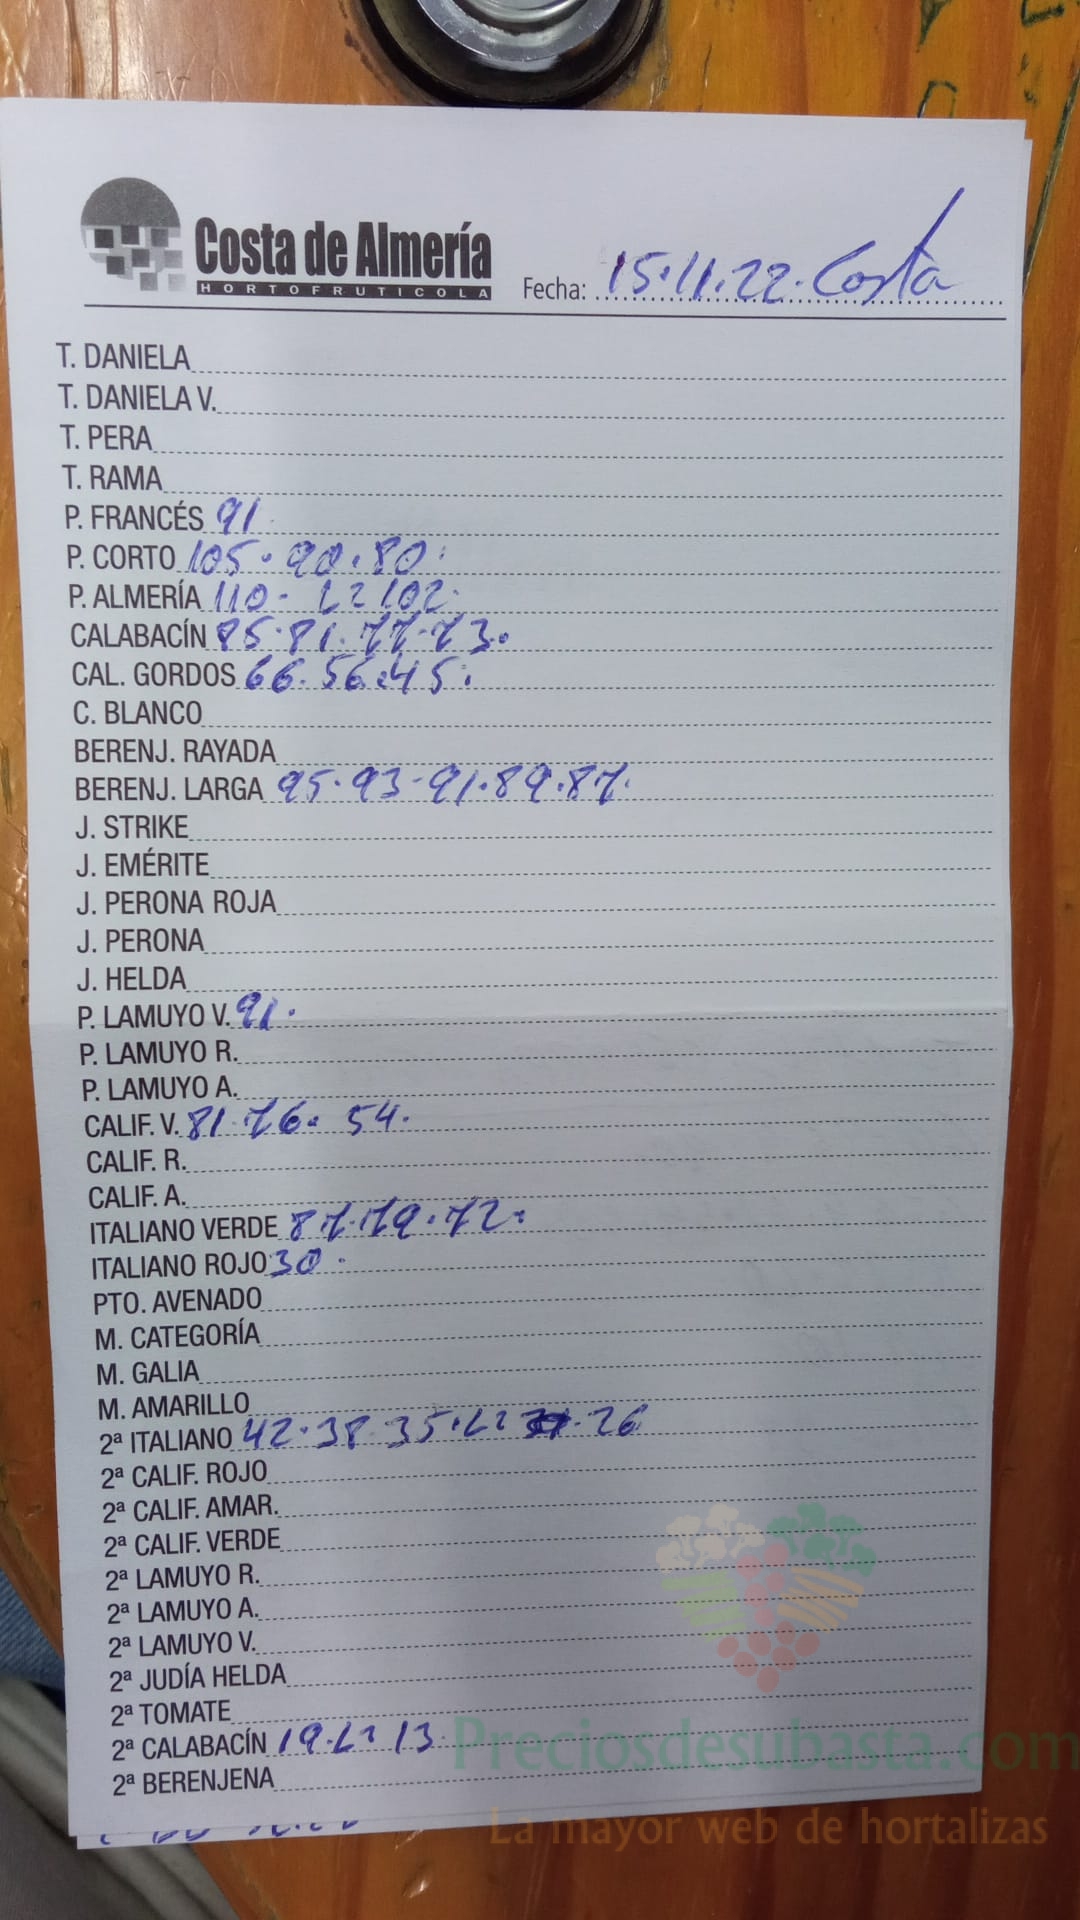 Costa de Almería
HORTOFRUTICOLA
Fecha: 15.11.22. Costa
T. DANIELA
T. DANIELA V.
T. PERA
T. RAMA
P. FRANCÉS 91
P. CORTO 105. 90. 80.
P. ALMERÍA 110- L2 102.
CALABACÍN 85.81.77.73.
CAL. GORDOS 66.56.45.
C. BLANCO
BERENJ. RAYADA
BERENJ. LARGA 95.93-91.89.87.
J. STRIKE
J. EMÉRITE
J. PERONA ROJA
J. PERONA
J. HELDA
P. LAMUYO V. 91.
P. LAMUYO R.
P. LAMUYO A.
CALIF. V. 81.76. 54.
CALIF. R.
CALIF. A.
ITALIANO VERDE 87.79.72.
ITALIANO ROJO 30.
PTO. AVENADO
M. CATEGORÍA
M. GALIA
M. AMARILLO
2ª ITALIANO 42.38.35.L2 26
2ª CALIF. ROJO
2ª CALIF. AMAR.
2ª CALIF. VERDE
2ª LAMUYO R.
2ª LAMUYO A.
2ª LAMUYO V.
2ª JUDÍA HELDA
2ª TOMATE
2ª CALABACÍN 19.L2 13
2ª BERENJENA
Preciosdesubasta.com
La mayor web de hortalizas